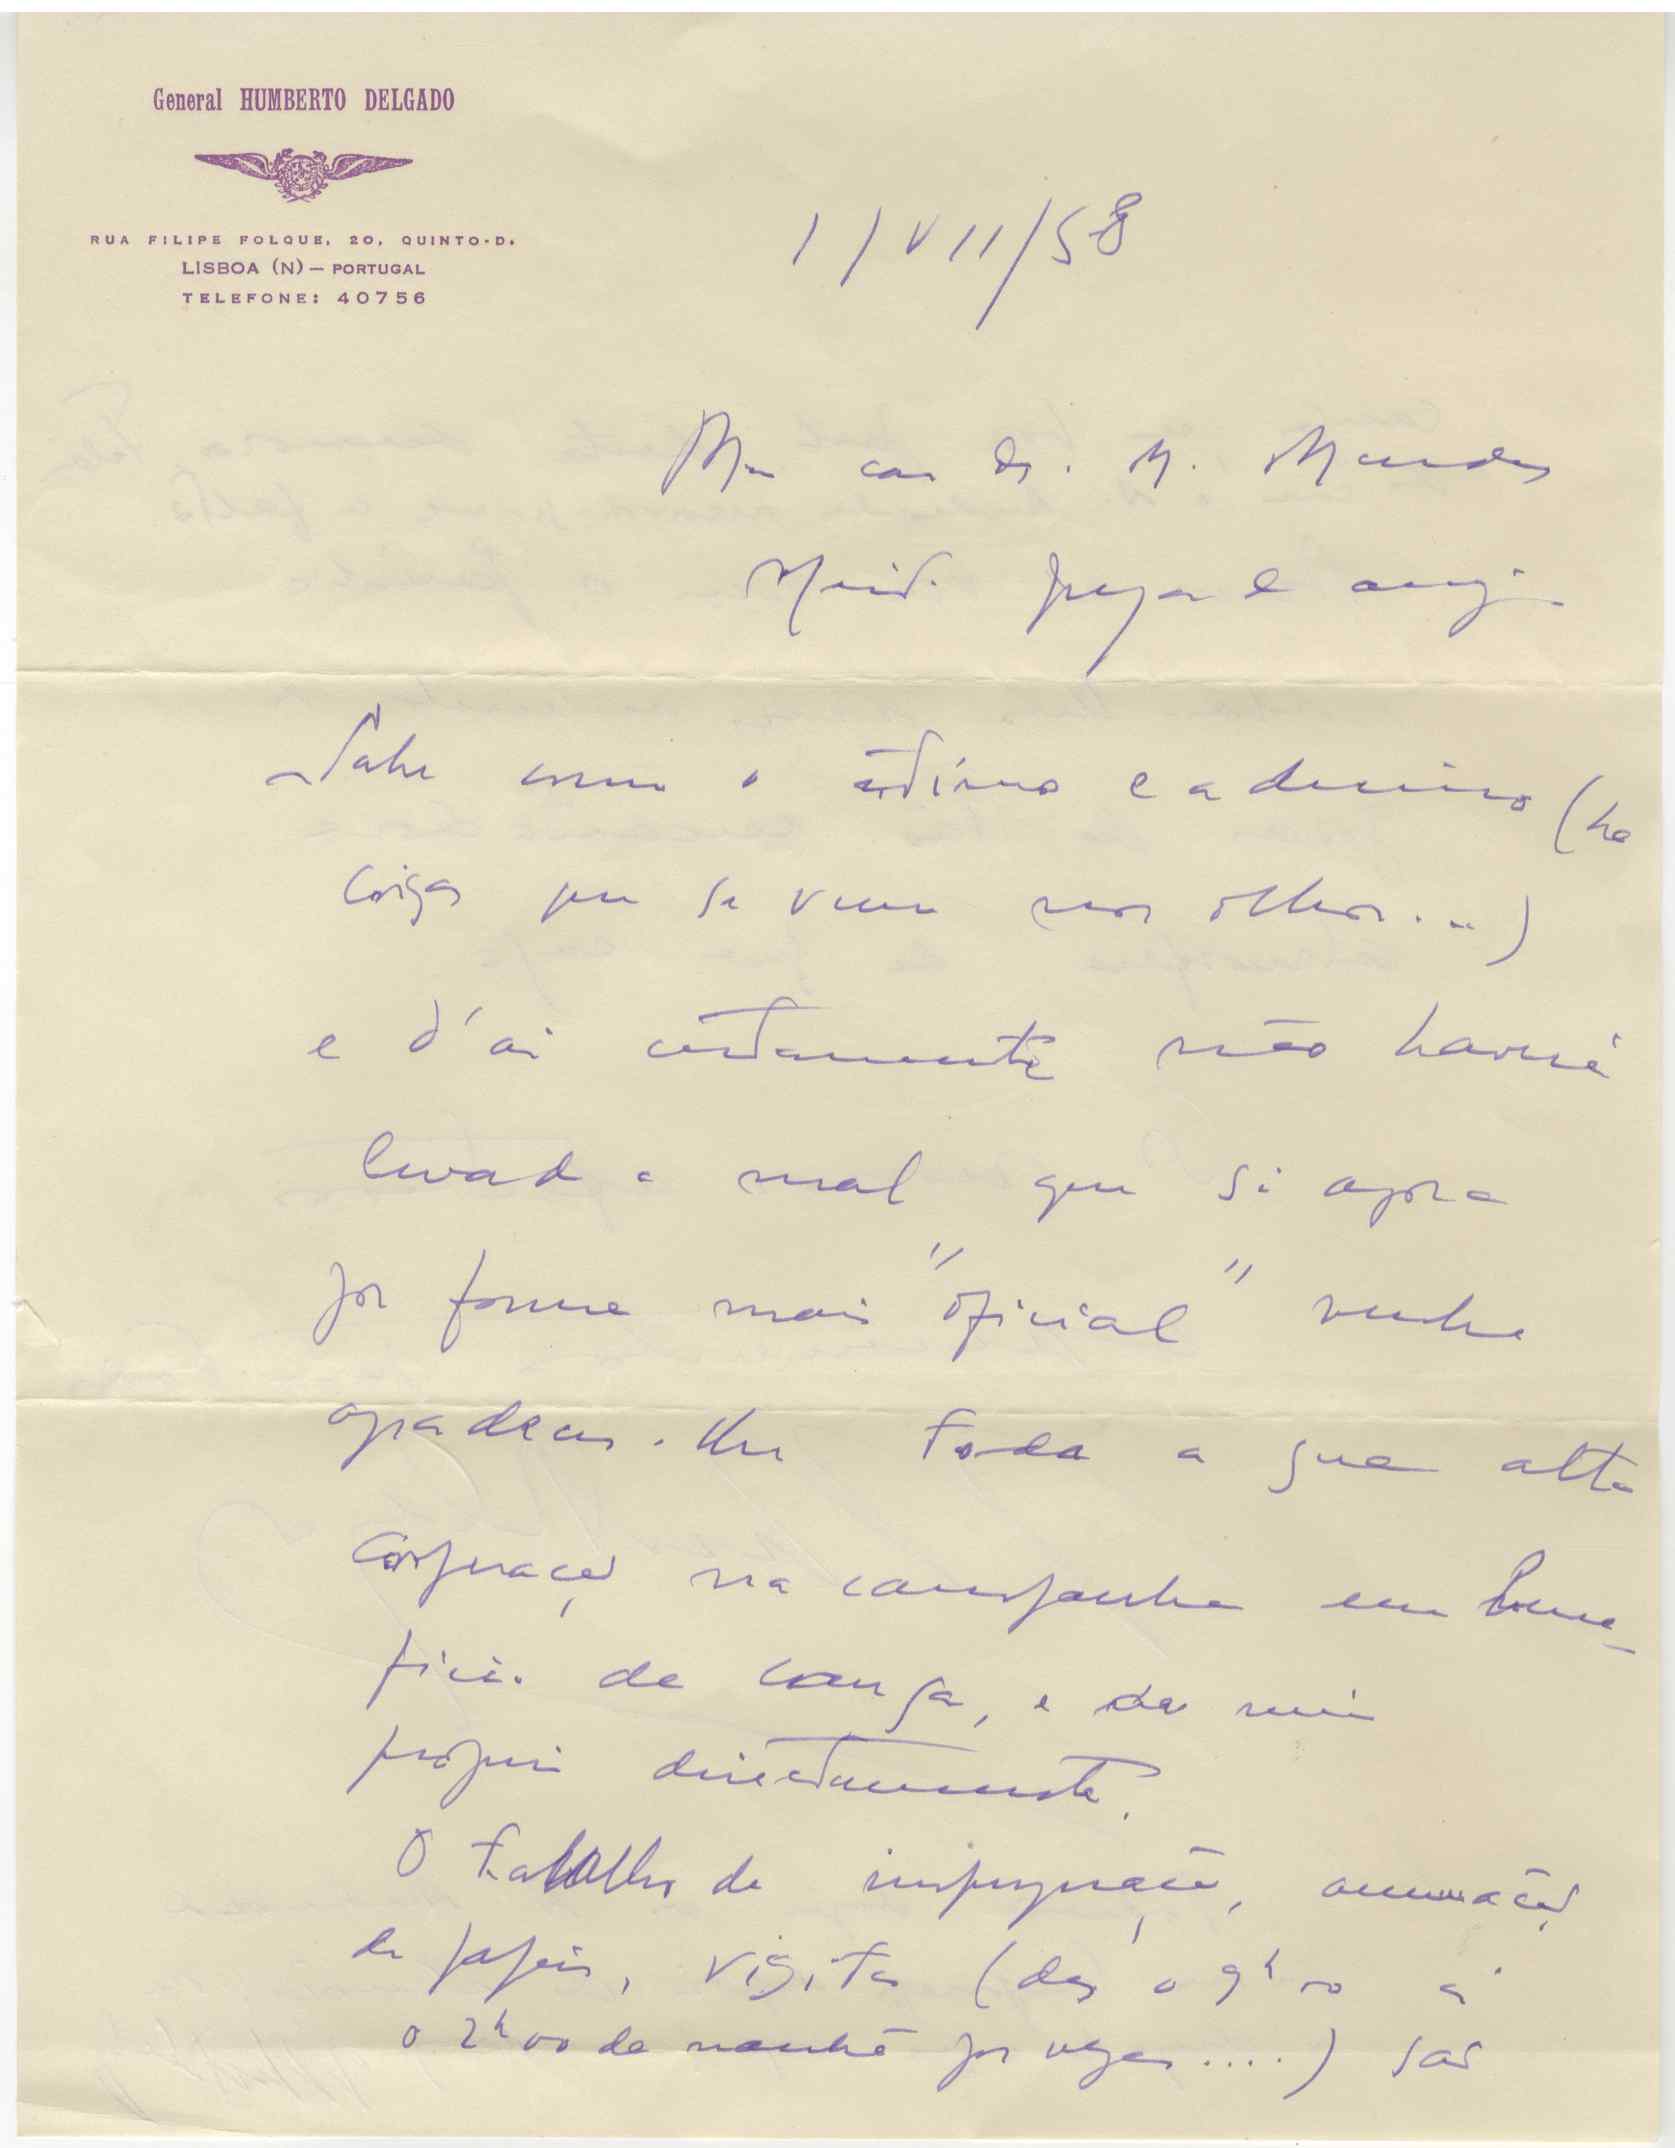 General HUMBERTO DELGADO
RUA FILIPE FOLQUE, 20, QUINTO-D.
LISBOA (N) — PORTUGAL
TELEFONE: 40756
1/VII/58
Meu caro Dr. M. Mendes
Muito prezado amigo
Sabe como o estimo e admiro (ha
coisas que se veem nos olhos...)
e d'ai certamente não haverá
levado a mal que só agora
por forma mais "oficial" venha
agradecer-lhe toda a sua alta
cooperação na campanha em bene-
ficio da causa, e de mim
proprio directamente.
O trabalho de impugnação, arrumação
de papeis, visitas (das 09h00 ás
02h00 da manhã por vezes....) são